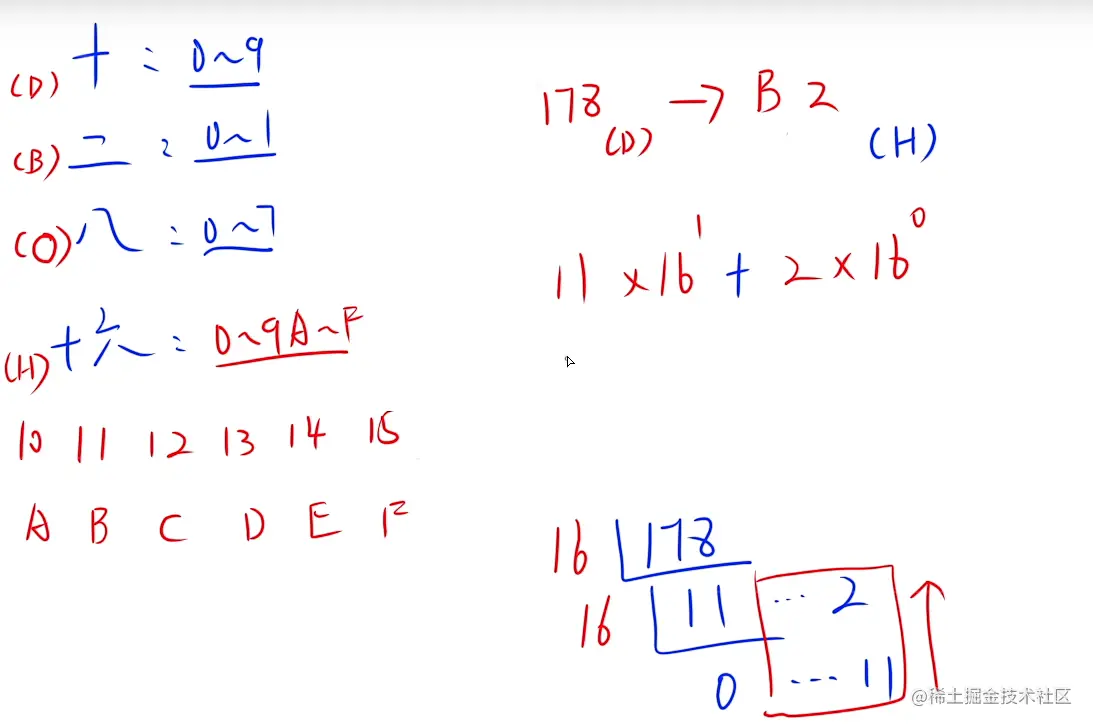 (D) 十：0~9
(B) 二：0~1
(O) 八：0~7
(H) 十六：0~9A~F
10 11 12 13 14 15
A B C D E F
178(D) → B2 (H)
11×16¹+2×16⁰
16 178
16 11 … 2
0 … 11
@稀土掘金技术社区